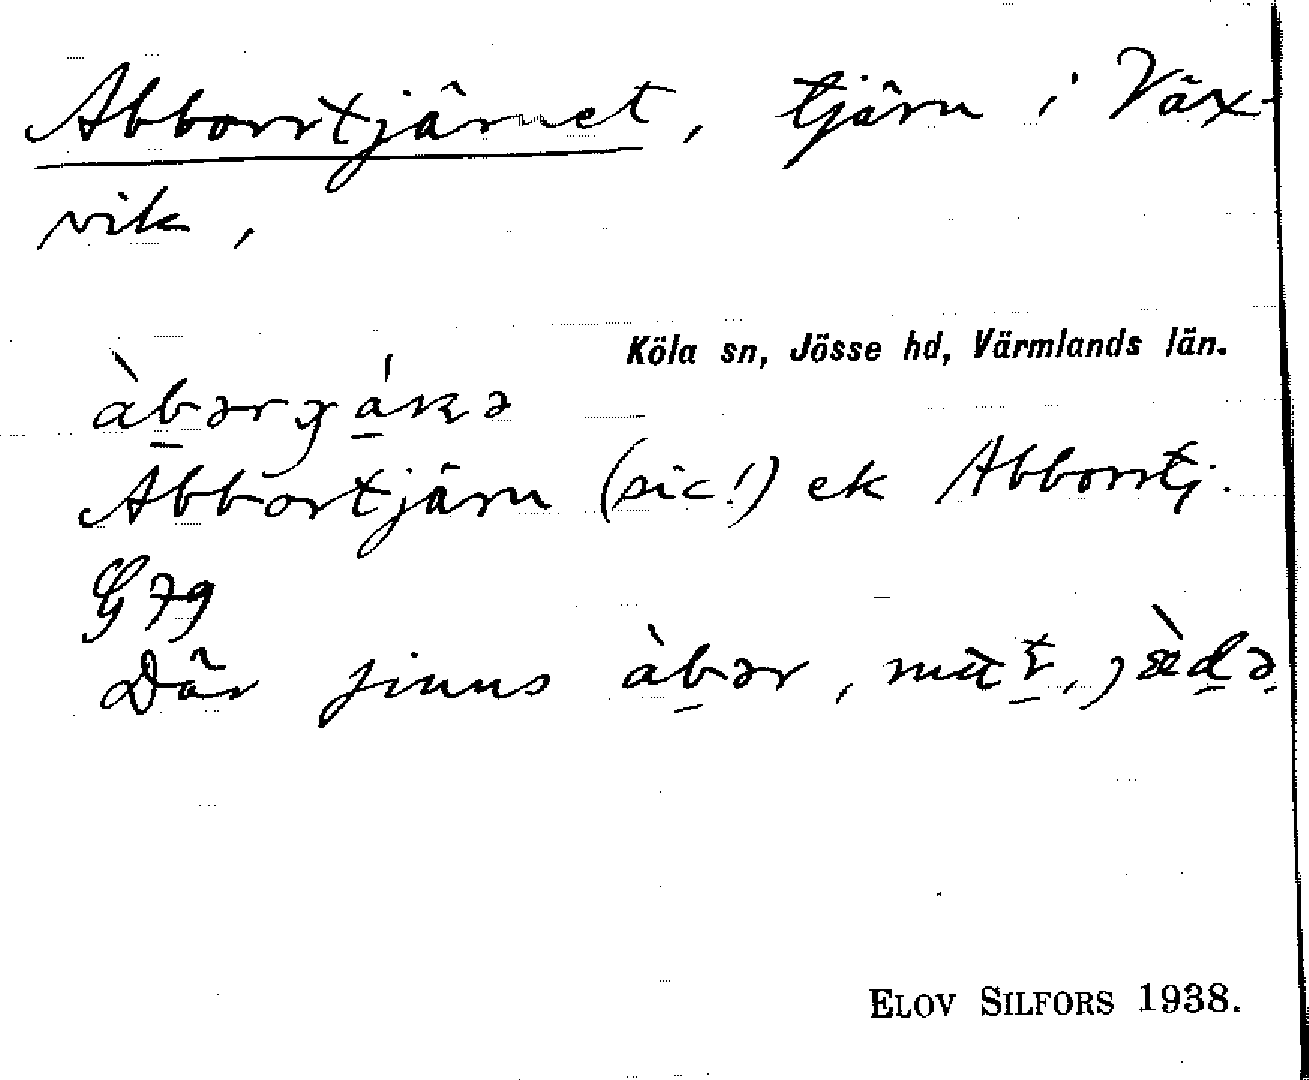 Abborrtjärnet, tjärn i Väx-
vik,
Köla sn, Jösse hd, Värmlands län.
Abbortjärn (sic!) ek Abborrtj.
G 79
Där finns àbər,
ELOV SILFORS 1938.